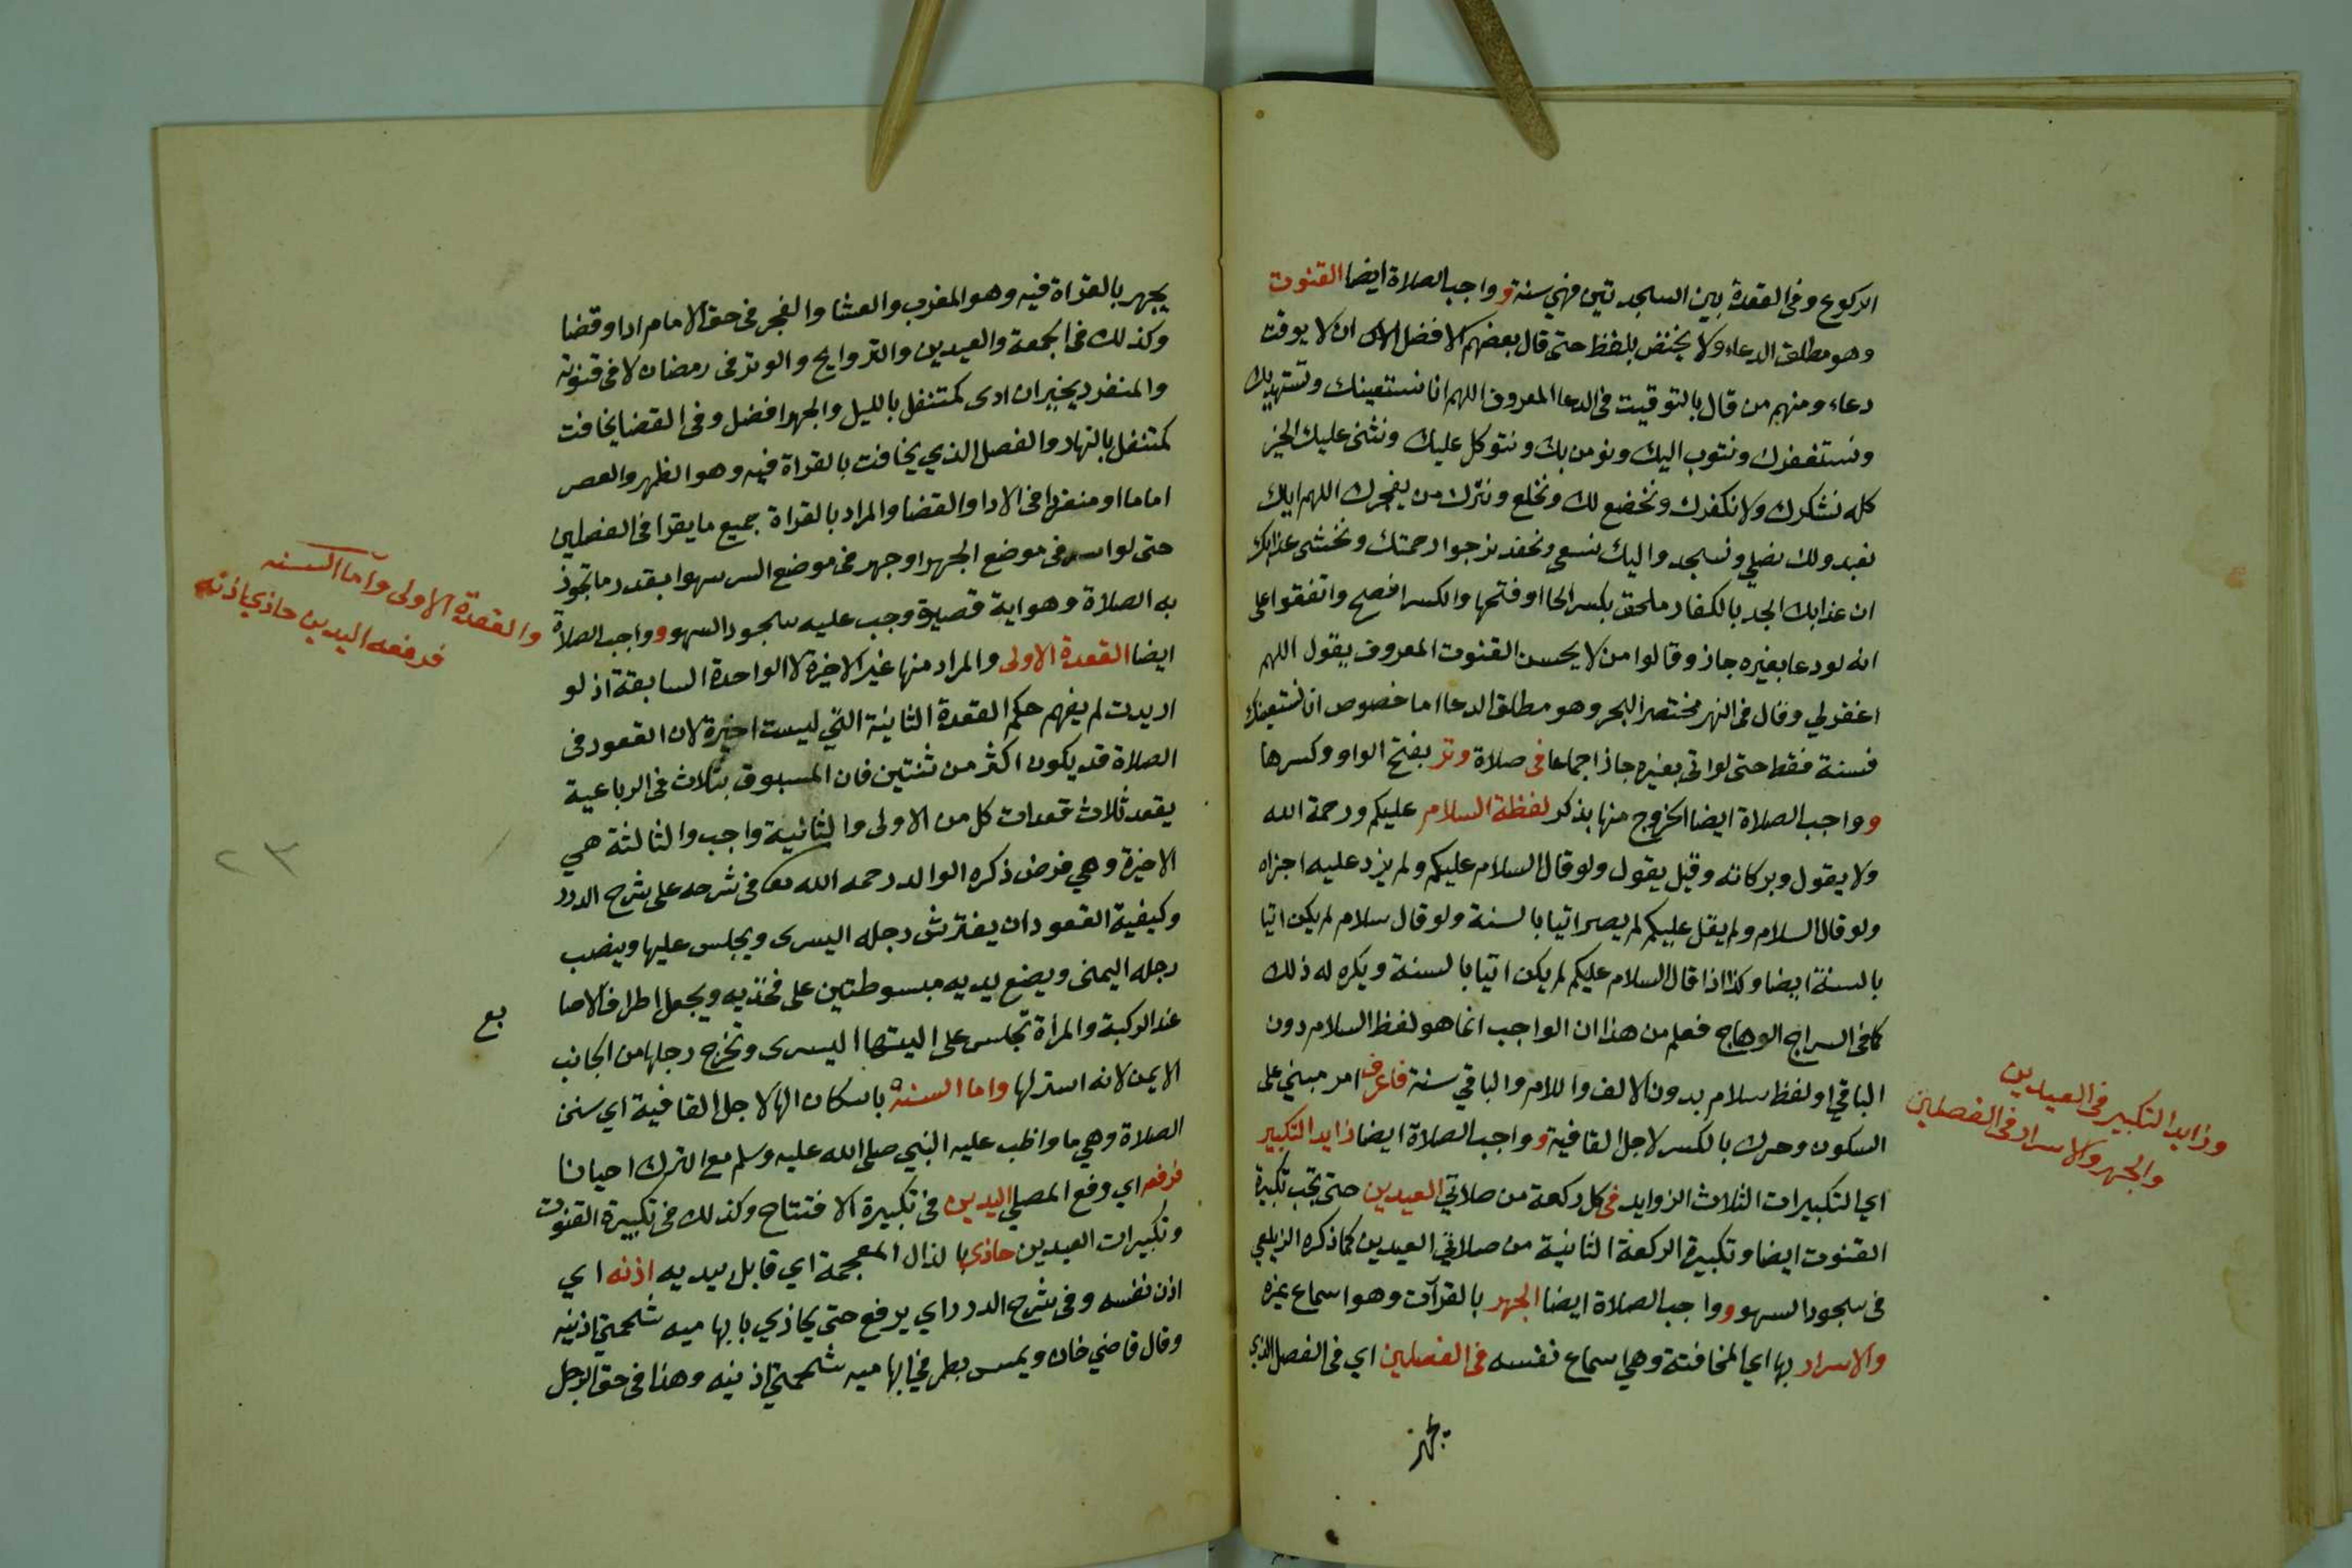 الركوع وفى القعدة بين السجدتين فهي سنة و واجب الصلاة ايضا القنوت
وهو مطلق الدعاء ولا يختص بلفظ حتى قال بعضهم الافضل ان لا يوقت
دعاء ومنهم من قال بالتوقيت فى الدعا المعروف اللهم انا نستعينك ونستهديك
ونستغفرك ونتوب اليك ونومن بك ونتوكل عليك ونثنى عليك الخير
كله نشكرك ولا نكفرك ونخضع لك ونخلع ونترك من يفجرك اللهم اياك
نعبد ولك نصلي ونسجد واليك نسعى ونحفد نرجوا رحمتك ونخشى عذابك
ان عذابك الجد بالكفار ملحق بكسر الحا او فتحها والكسر افصح واتفقوا على
انه لو دعا بغيره جاز وقالوا من لا يحسن القنوت المعروف يقول اللهم
اغفرلي وقال فى النهر مختصر البحر وهو مطلق الدعا اما خصوص انا نستعينك
فسنة فقط حتى لو اتى بغيره جاز اجماعا فى صلاة وتر بفتح الواو وكسرها
و واجب الصلاة ايضا الخروج منها بذكر لفظة السلام عليكم ورحمة الله
ولا يقول وبركاته وقيل يقول ولو قال السلام عليكم ولم يزد عليه اجزاه
ولو قال السلام ولم يقل عليكم لم يصر اتيا بالسنة ولو قال سلام لم يكن اتيا
بالسنة ايضا وكذا اذا قال السلام عليكم لم يكن اتيا بالسنة ويكره له ذلك
كما فى السراج الوهاج فعلم من هذا ان الواجب انما هو لفظ السلام دون
الباقي او لفظ سلام بدون الالف واللام والباقي سنة فاعرف امر مبني على
السكون وحرك بالكسر لاجل القافية و واجب الصلاة ايضا زايد التكبير
اي التكبيرات الثلاث الزوايد فى كل ركعة من صلاتي العيدين حتى تجب تكبيرة
القنوت ايضا وتكبيرة الركعة الثانية من صلاتي العيدين كما ذكره الزيلعي
فى سجود السهو و واجب الصلاة ايضا الجهر بالقرآت وهو اسماع غيره
والاسرار بها اي المخافتة وهي اسماع نفسه فى الفصلين اي فى الفصل الذي
يجهر
وزايد التكبير فى العيدين
والجهر والاسرار فى الفصلين
يجهر بالقراة فيه وهو المغرب والعشا والفجر فى حق الامام ادا وقضا
وكذلك فى الجمعة والعيدين والتروايح والوتر فى رمضان لا فى قنوته
والمنفرد يخير ان ادى كمتنفل بالليل والجهر افضل وفى القضا يخافت
كمتنفل بالنهار والفصل الذي يخافت بالقراة فيه وهو الظهر والعصر
اماما او منفردا فى الادا والقضا والمراد بالقراة جميع ما يقرا فى الفصلين
حتى لو اسر فى موضع الجهر او جهر فى موضع السر سهوا بقدر ما تجوز
به الصلاة وهو اية قصيرة وجب عليه سجود السهو و واجب الصلاة
ايضا القعدة الاولى والمراد منها غير الاخيرة لا الواحدة السابقة اذ لو
اريدت لم يفهم حكم القعدة الثانية التي ليست اخيرة لان القعود فى
الصلاة قد يكون اكثر من ثنتين فان المسبوق بثلاث فى الرباعية
يقعد ثلاث قعدات كل من الاولى والثانية واجب والثالثة هي
الاخيرة وهي فرض ذكره الوالد رحمه الله تعا فى شرحه على شرح الدرر
وكيفية القعود ان يفترش رجله اليسرى ويجلس عليها وينصب
رجله اليمنى ويضع يديه مبسوطتين على فخذيه ويجعل اطراف الاصا
بع
عند الركبة والمرأة تجلس على اليتها اليسرى وتخرج رجلها من الجانب
الايمن لانه استر لها واما السنة باسكان الها لاجل القافية اي سنن
الصلاة وهي ما واظب عليه النبي صلى الله عليه وسلم مع الترك احيانا
فرفعه اي رفع المصلي اليدين فى تكبيرة الافتتاح وكذلك فى تكبيرة القنوت
وتكبيرات العيدين حاذي بالذال المعجمة اي قابل بيديه اذنه اي
اذن نفسه وفى شرح الدرر اي يرفع حتى يحاذي بابهاميه شحمتي اذنيه
وقال قاضي خان ويمس بطرفي ابهاميه شحمتي اذنيه وهذا فى حق الرجل
والقعدة الاولى وآما السنه
فرفعه اليدين حاذي اذنه
٢٣